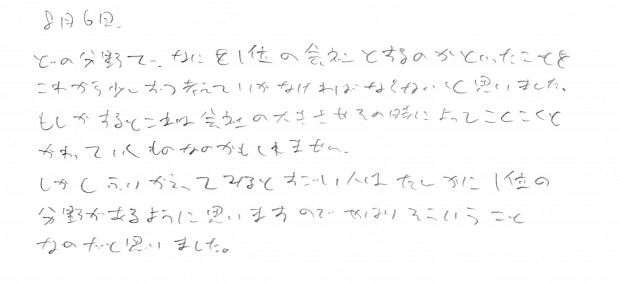 8月6日.
どの分野で、なにを1位の会社とするのかといったことを
これから少しずつ考えていかなければならないと思いました。
もしかするとこれは会社の大きさやその時によってことごとく
かわっていくものなのかもしれません。
しかしふりかえってみるとすごい人はたしかに1位の
分野があるように思いますのでやはりそういうこと
なのだと思いました。